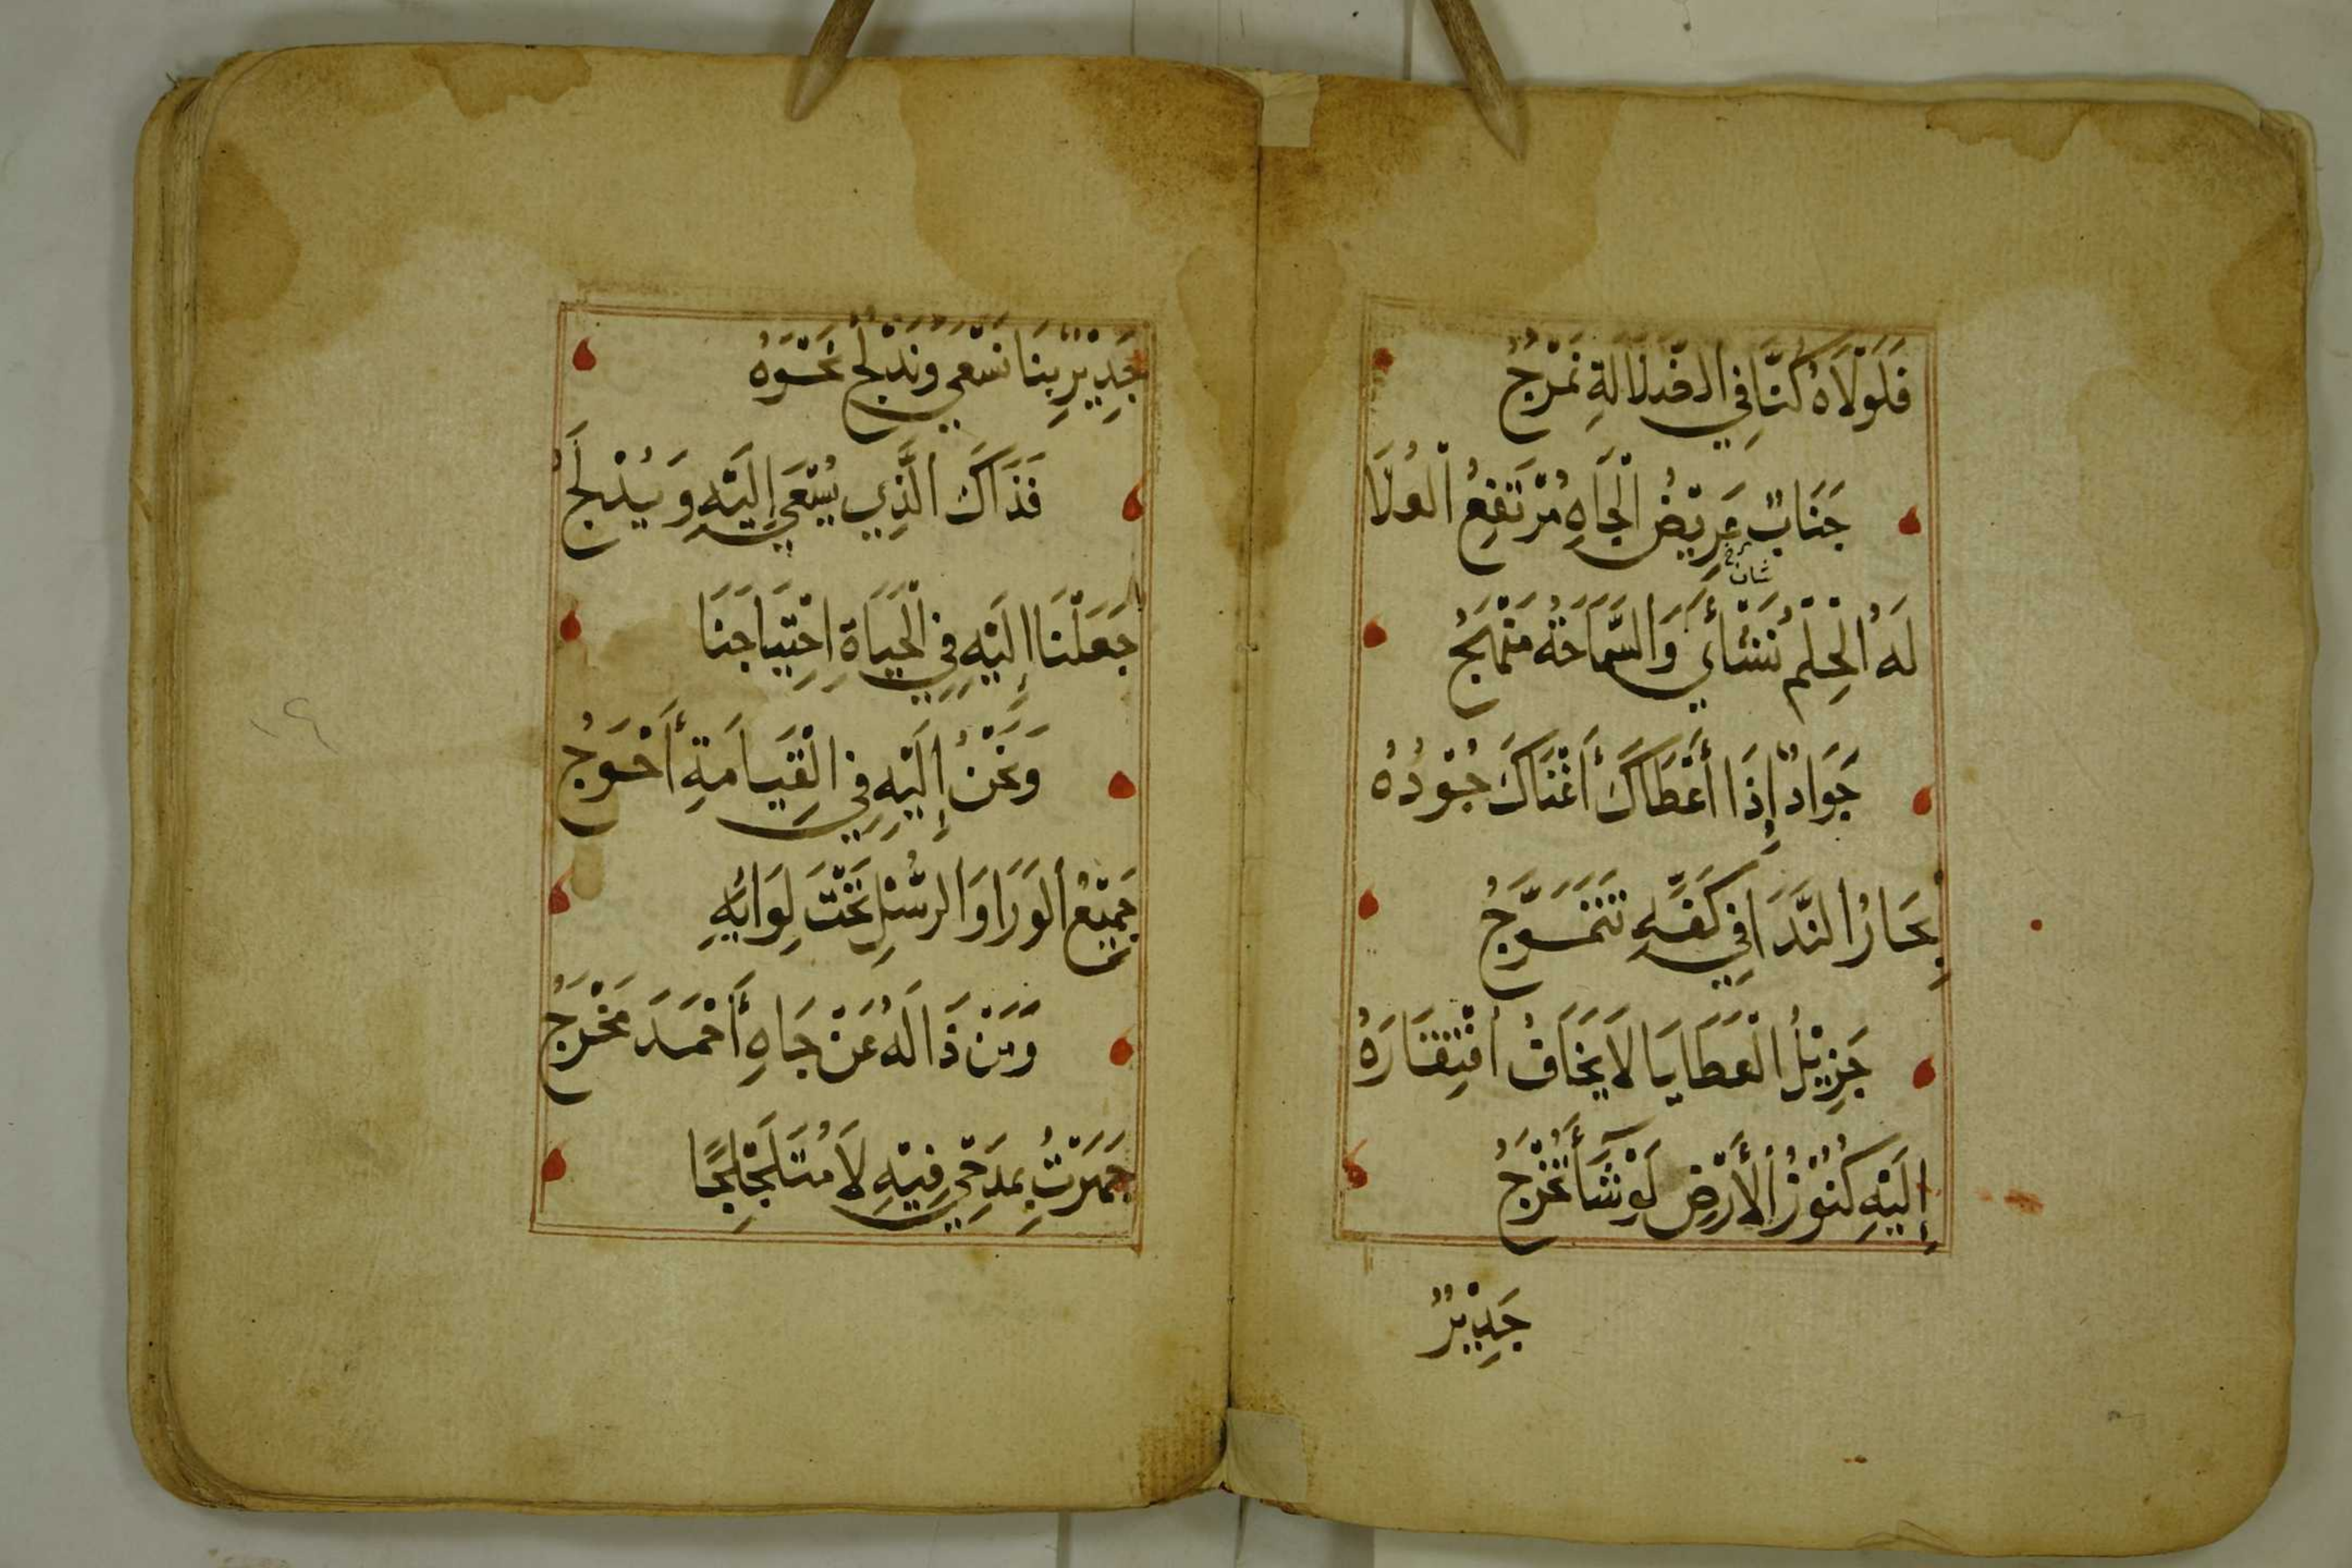 فَلَوْلَاهُ كُنَّا فِي الضَّلَالَةِ نَمْرُجُ
جَنَابٌ عَرِيْضُ الْجَاهِ مُرْتَفِعُ الْعُلَا
شان
لَهُ الْحِلْمُ نَشْأَيِ وَالسَّمَاحَةُ مَنْهَجُ
جَوَادٌ إِذَا أَعْطَاكَ أَغْنَاكَ جُوْدُهُ
بِحَارُ النَّدَا فِي كَفِّهِ تَتَمَوَّجُ
جَزِيْلُ الْعَطَايَا لَا يَخَافُ افْتِقَارَهُ
إِلَيْهِ كُنُوْزُ الْأَرْضِ لَوْ شَآ أَتُخْرَجُ
جَدِيْرٌ
جَدِيْرٌ بِنَا نَسْعَي وَنُدْلِجُ نَحْوَهُ
فَذَاكَ الَّذِي يُسْعَي إِلَيْهِ وَيُدْلَجُ
جَعَلْنَا إِلَيْهِ فِي الْحَيَاةِ احْتِيَاجَنَا
وَنَحْنُ إِلَيْهِ فِي الْقِيَامَةِ أَحْوَجُ
جَمِيْعُ الْوَرَا وَالرُّسْلِ تَحْتَ لِوَايِهِ
وَمَنْ ذَا لَهُ عَنْ جَاهِ أَحْمَدَ مَخْرَجُ
جَهَرْتُ بِمَدْحِي فِيْهِ لَا مُتَلَجْلِجًا
١٩